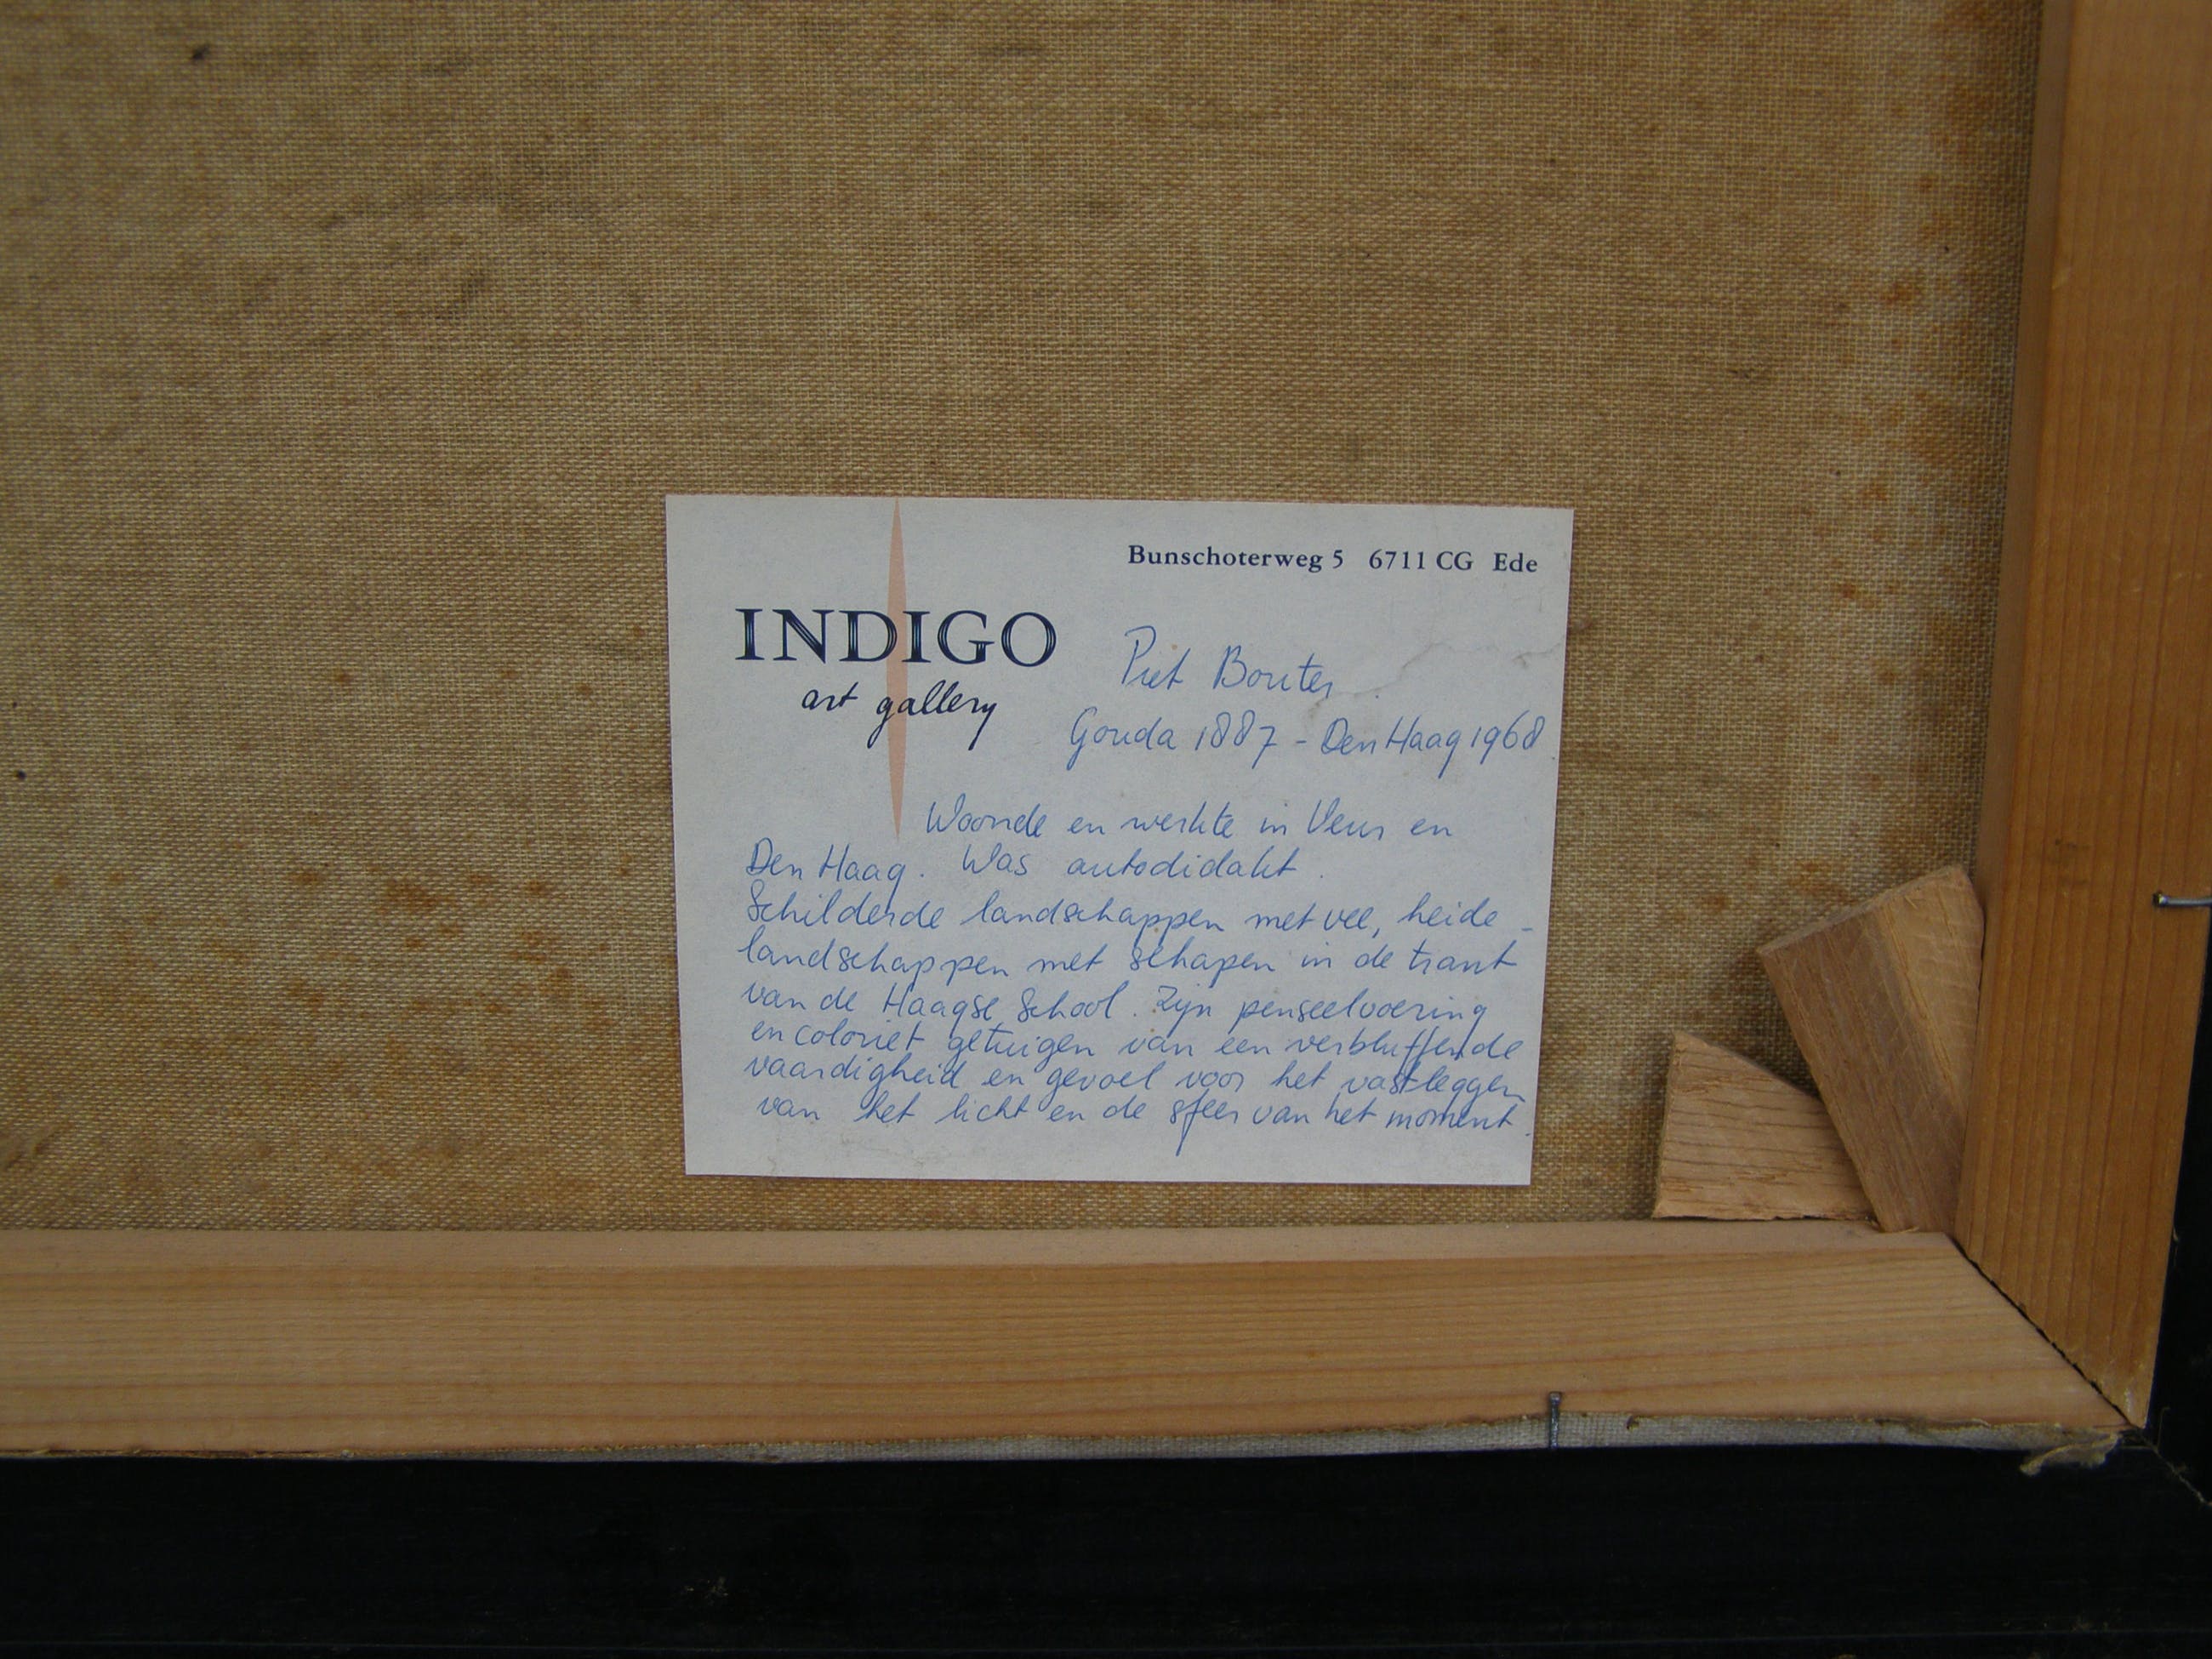 Bunschoterweg 5 6711 CG Ede
INDIGO
art gallery
Piet Bouter
Gouda 1887 - Den Haag 1968
Woonde en werkte in Veur en
Den Haag. Was autodidakt.
Schilderde landschappen met vee, heide-
landschappen met schapen in de trant
van de Haagse School. Zijn penseelvoering
en coloriet getuigen van een verbluffende
vaardigheid en gevoel voor het vastleggen
van het licht en de sfeer van het moment.